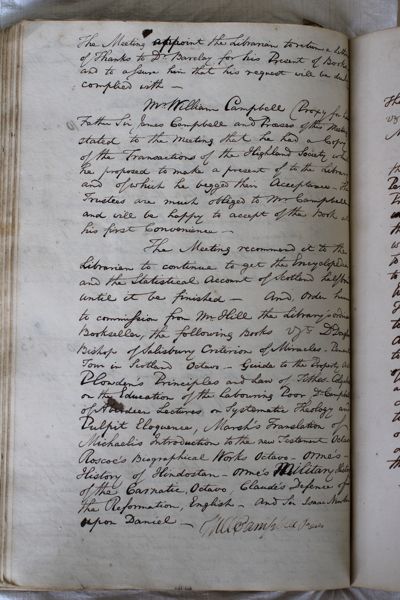 The Meeting appoint the Librarian to return a letter
of Thanks to Dr. Barclay for his Present of Books
and to assure him that his request will be duly
complied with —
Mr. William Campbell Proxy for his
Father Sir James Campbell and Preses of the Meeting
stated to the Meeting that he had a Copy
of the Transactions of the Highland Society which
he proposed to make a present of to the Library
and of which he begged their Acceptance. The
Trustees are much obliged to Mr. Campbell
and will be happy to accept of the Book at
his first Convenience —
The Meeting recommend it to the
Librarian to continue to get the Encyclopedia
and the Statistical Account of Scotland
until it be finished — And, Order him
to commission from Mr. Hill the Library's ordinary
Bookseller, the following Books Vizt. Dr. Douglas
Bishop of Salisbury Criterion of Miracles —
Tour in Scotland Octavo — Guide to the
Plowden's Principles and Law of Tithes
on the Education of the Labouring Poor Dr. Campbell
of Aberdeen Lectures on Systematic Theology and
Pulpit Eloquence, Marsh's Translation of
Michaelis Introduction to the new Testament Octavo
Roscoe's Biographical Works Octavo — Orme's
History of Hindostan — Orme's Military History
of the Carnatic, Octavo, Claude's Defence of
the Reformation, English — And Sir Isaac Newton
upon Daniel — Campbell Preses